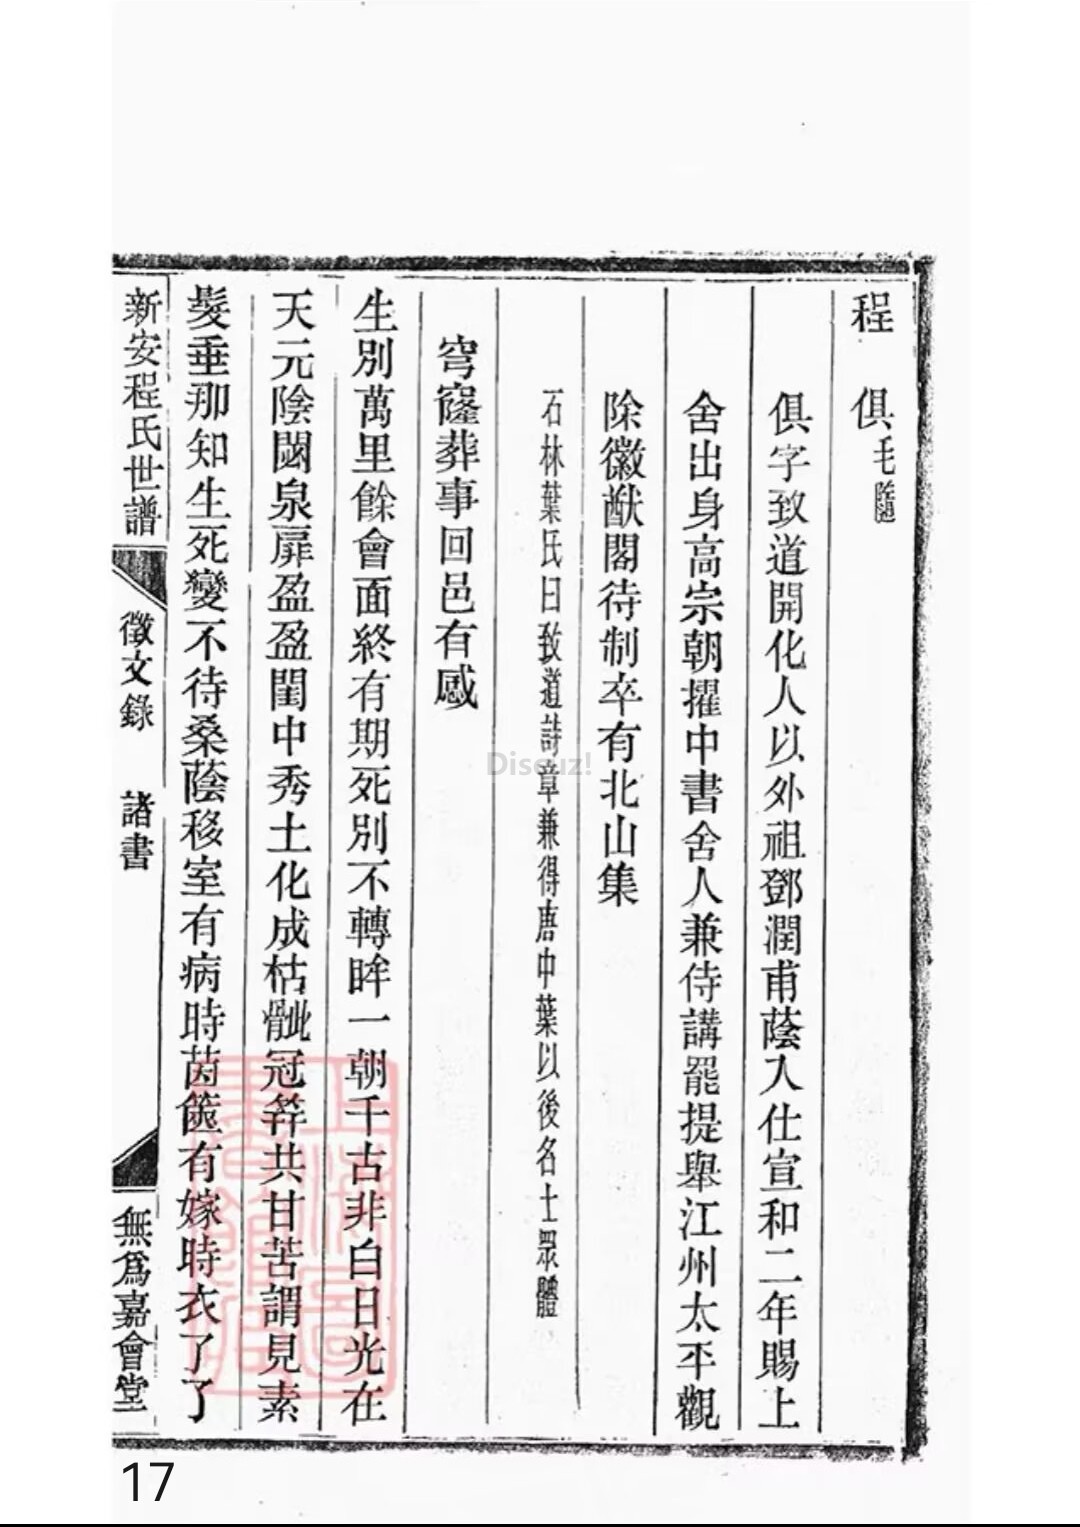 程　俱 毛隨
俱字致道開化人以外祖鄧潤甫蔭入仕宣和二年賜上
舍出身高宗朝擢中書舍人兼侍講罷提舉江州太平觀
除徽猷閣待制卒有北山集
石林葉氏曰致道詩章兼得唐中葉以後名士眾體
穹窿葬事回邑有感
生別萬里餘會面終有期死別不轉眸一朝千古非白日光在
天元陰閟泉扉盈盈閨中秀土化成枯骴冠笄共甘苦謂見素
髮垂那知生死變不待桑蔭移室有病時茵篋有嫁時衣了了
新安程氏世譜
徵文錄　諸書
無為嘉會堂
Discuz!
17